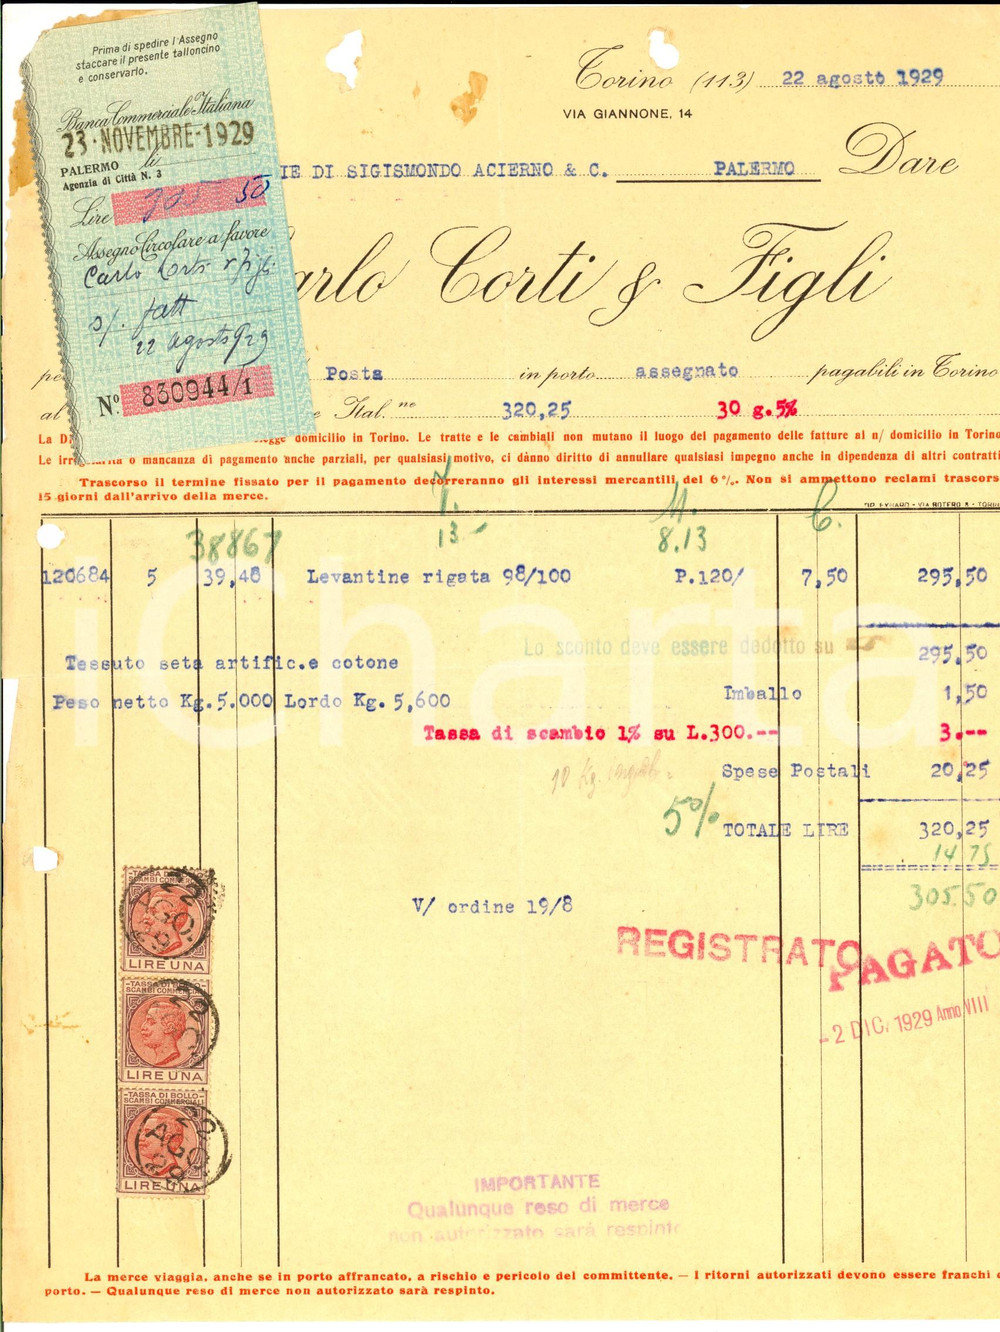 Prima di spedire l'Assegno
staccare il presente talloncino
e conservarlo.
Banca Commerciale Italiana
23·NOVEMBRE·1929
PALERMO li
Agenzia di Città N. 3
Lire 305 50
Assegno Circolare a favore
Carlo Corti & Figli
s/. fatt
22 agosto 929
N.º 830944/1
Torino (113) 22 agosto 1929
VIA GIANNONE, 14
IE DI SIGISMONDO ACIERNO & C. PALERMO Dare
arlo Corti & Figli
pe Posta in porto assegnato pagabili in Torino
al e Ital. ne 320,25 30 g.5%
La D legge domicilio in Torino. Le tratte e le cambiali non mutano il luogo del pagamento delle fatture al n/ domicilio in Torino
Le irregolarità o mancanza di pagamento anche parziali, per qualsiasi motivo, ci dànno diritto di annullare qualsiasi impegno anche in dipendenza di altri contratti
Trascorso il termine fissato per il pagamento decorreranno gli interessi mercantili del 6%. Non si ammettono reclami trascorsi
15 giorni dall'arrivo della merce.
VIA BOTERO 8 - TORINO
38867 13 M. 8.13 C.
120684 5 39,40 Levantine rigata 98/100 P.120/ 7,50 295,50
Lo sconto deve essere dedotto su
295,50
Tessuto seta artific.e cotone
Peso netto Kg.5.000 Lordo Kg. 5,600 Imballo 1,50
Tassa di scambio 1% su L.300.-- 3.--
10 Kg.
Spese Postali 20,25
5% TOTALE LIRE 320,25
14 75
305.50
V/ ordine 19/8
REGISTRATO
PAGATO
-2 DIC. 1929 Anno VIII
TASSA DI BOLLO
SCAMBI COMMERCIALI
22 AGO.
LIRE UNA
TASSA DI BOLLO
SCAMBI COMMERCIALI
22
LIRE UNA
TASSA DI BOLLO
SCAMBI COMMERCIALI
22 AGO
LIRE UNA
iCharta
IMPORTANTE
Qualunque reso di merce
non autorizzato sarà respinto
La merce viaggia, anche se in porto affrancato, a rischio e pericolo del committente. — I ritorni autorizzati devono essere franchi
porto. — Qualunque reso di merce non autorizzato sarà respinto.